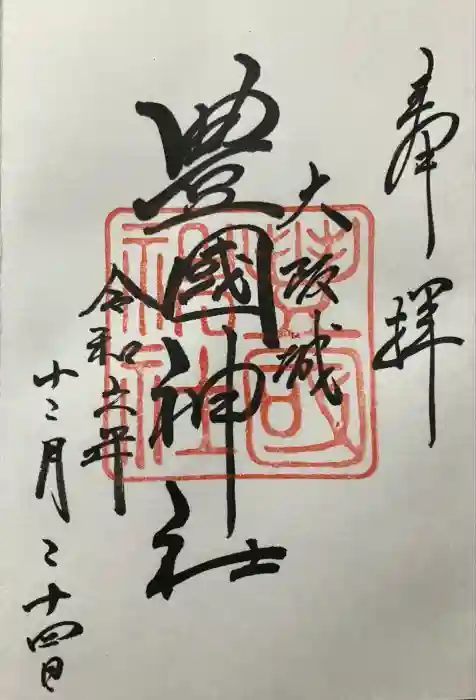 奉拝
大阪城
豊國神社
豊國神社
令和六年
十二月二十四日